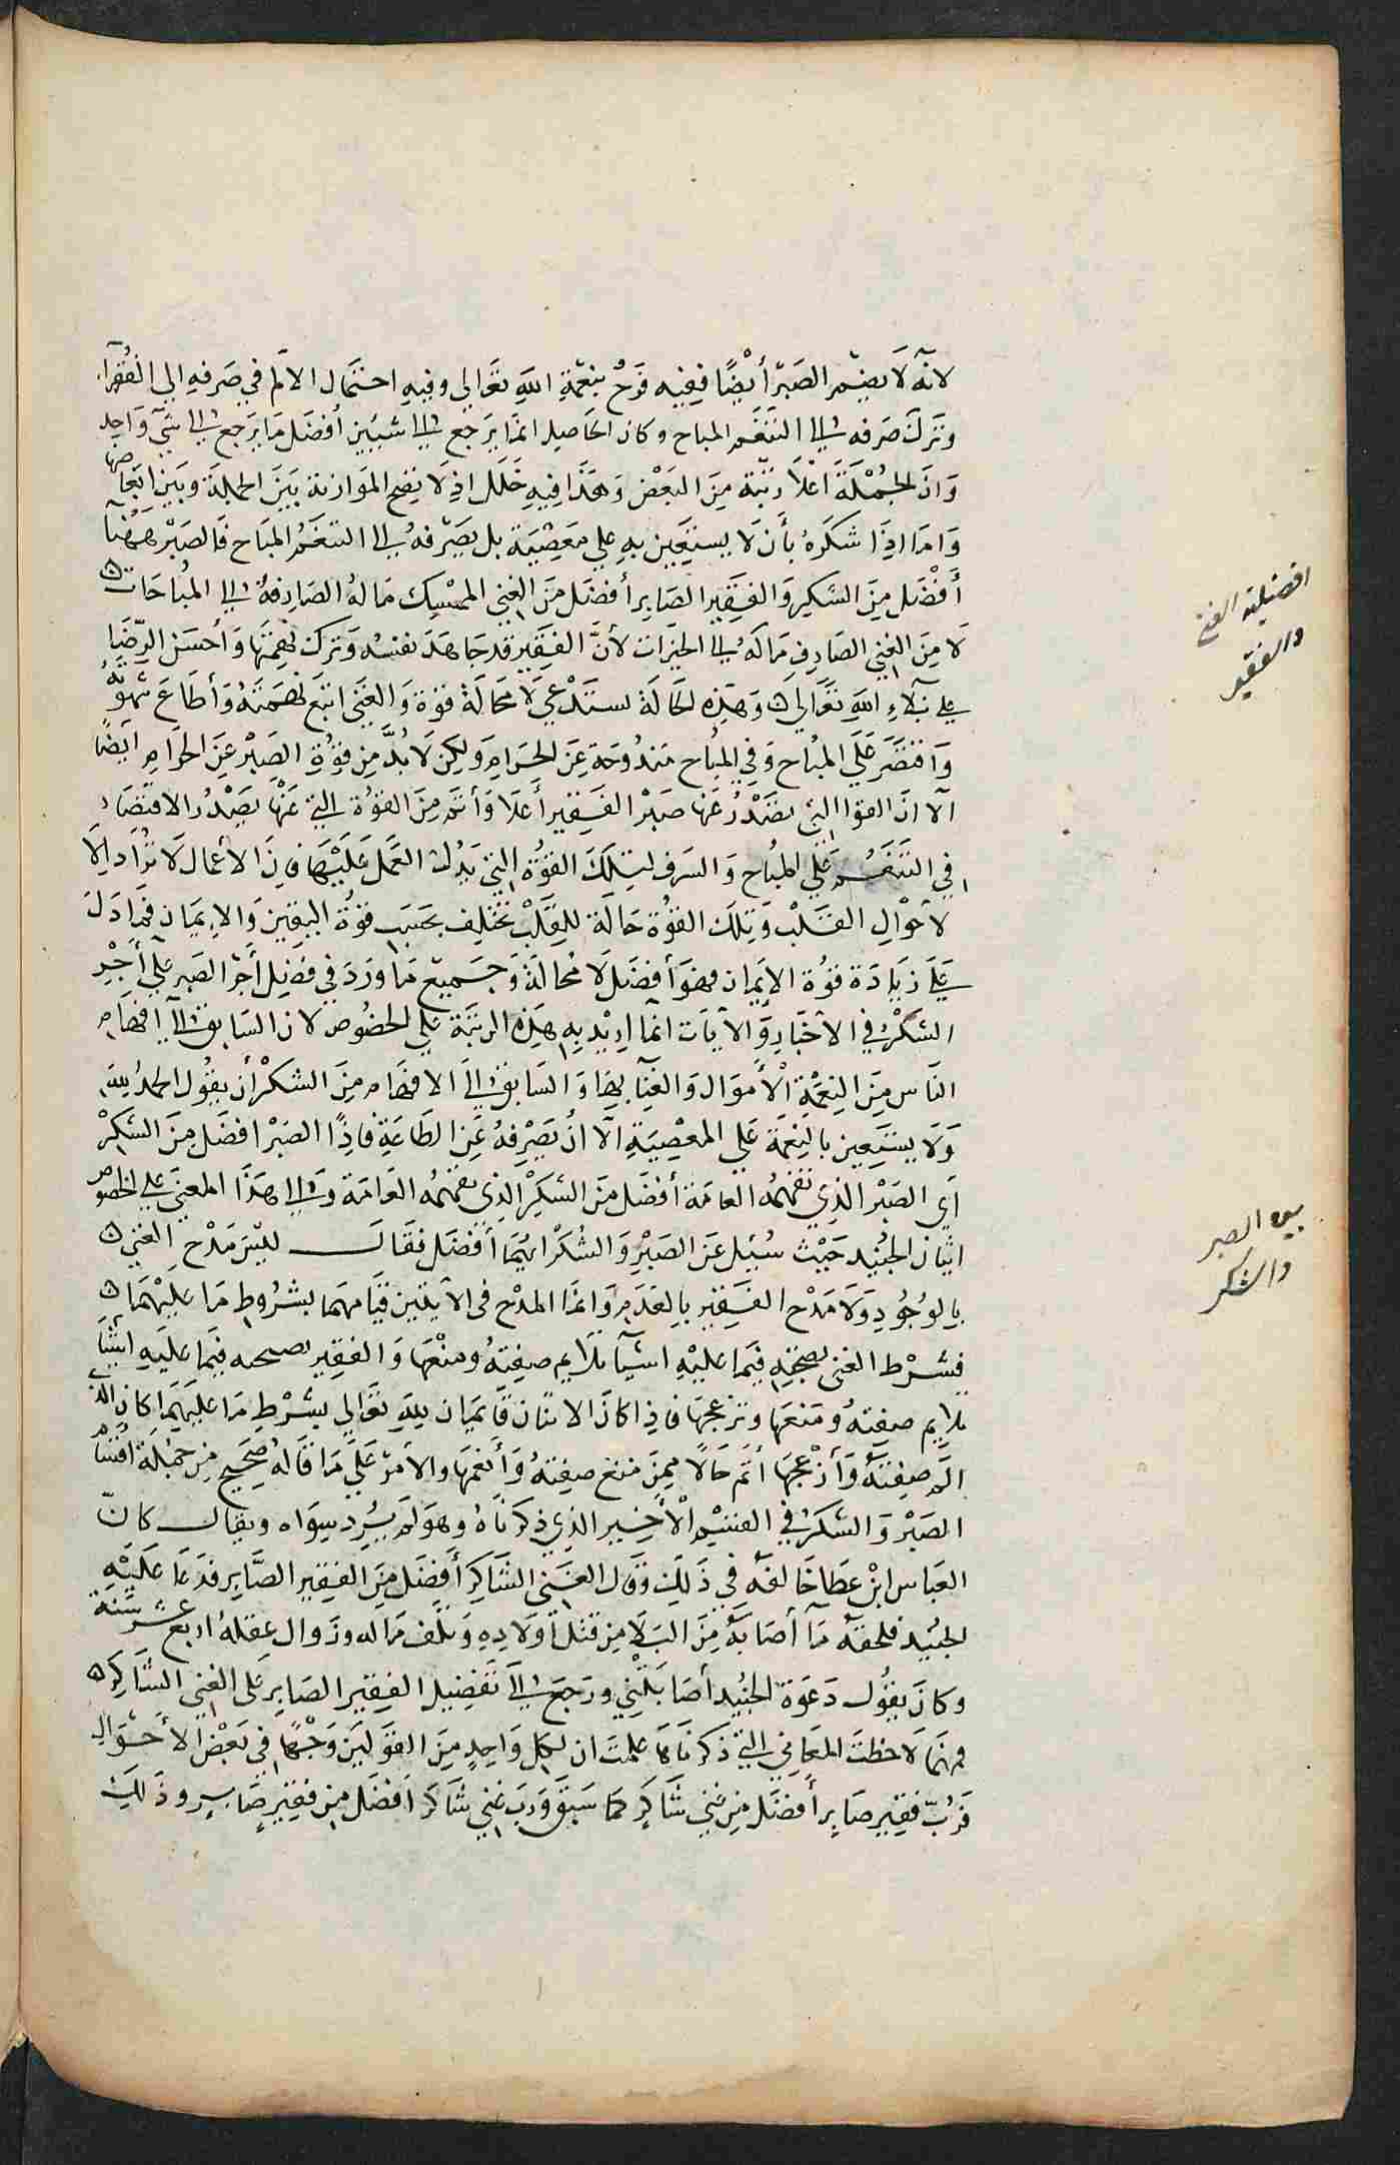 لانه لا يضم الصبر أيضا ففيه فرح بنعمة الله تعالي وفيه احتمال الالم في صرفه الي الفقرآء
وترك صرفه الي التنعم المباح وكان الحاصل انما يرجع الي شيين أفضل ما يرجع الي شي واحد
وان الجملة اعلا رتبة من البعض وهذا فيه خلل اذ لا يصح الموازنة بين الجملة وبين ابعاضها
وامّا اذا شكره بأن لا يستعين به علي معصية بل يصرفه الي التنعم المباح فالصبر ههنا
أفضل من الشكر والفقير الصابر أفضل من الغني الممسك ماله الصارفة الي المباحات
لا من الغني الصارف ماله الي الخيرات لأن الفقير قد جاهد نفسه وترك نهمتها وأحسن الرضا
علي بلاء الله تعالي وهذه الحالة تستدعي لا محالة قوة والغني اتبع نهمته وأطاع شهوته
واقتصر علي المباح وفي المباح مندوحة عن الحرام ولكن لا بد من قوة الصبر عن الحرام ايضا
الا ان القوا التي تصدر عنها صبر الفقير أعلا وأتم من القوة التي عنها يصدر الاقتصار
في التنعم علي المباح والشرف لتلك القوة التي يدل العمل عليها فان الأعمال لا تراد الا
لأحوال القلب وتلك القوة حالة للقلب تختلف بحسب قوة اليقين والايمان فما دل
علي زيادة قوة الايمان فهو أفضل لا محالة وجميع ما ورد في فضل أجر الصبر علي أجر
الشكر في الأخبار والآيات انما اريد به هذه الرتبة علي الخصوص لان السابق الي افهام
الناس من النعمة الأموال والغنا بها والسابق الي الافهام من الشكر أن يقول الحمد لله
ولا يستعين بالنعمة علي المعصية الا ان يصرفه عن الطاعة فاذا الصبر افضل من الشكر
اي الصبر الذي تفهمه العامة أفضل من الشكر الذي تفهمه العامة والي هذا المعني علي الخصوص
اشار الجنيد حيث سئل عن الصبر والشكر ايهما أفضل فقال ليس مدح الغني
بالوجود ولا مدح الفقير بالعدم وانما المدح في الاثنين قيامهما بشروط ما عليهما
فشرط الغني يصحبه فيما عليه اشيآ تلايم صفته ومتعها والفقير يصحبه فيما عليه اشيا
تلايم صفته ومنعها وتزعجها فاذا كان الاثنان قايمان لله تعالي بشرط ما عليهما كان الذي
الم صفته وأزعجها أتم حالا ممن متع صفته وأنعمها والامر علي ما قاله صحيح من جملة اقسام
الصبر والشكر في القسم الأخير الذي ذكرناه وهو لم يرد سواه ويقال كان
العباس ابن عطا خالفه في ذلك وقال الغني الشاكر أفضل من الفقير الصابر فدعا عليه
الجنيد فلحقه ما أصابه من البلا من قتل أولاده وتلف ماله وزوال عقله اربع عشر سنة
وكان يقول دعوة الجنيد أصابتني ورجع الي تفضيل الفقير الصابر علي الغني الشاكر
فمهما لاحظت المعاني التي ذكرناها علمت ان لكل واحد من القولين وجها في بعض الأحوال
فرب فقير صابر أفضل من غني شاكر كما سبق ورب غني شاكر أفضل من فقير صابر وذلك
افضلية الغني
والفقير
بين الصبر
والشكر